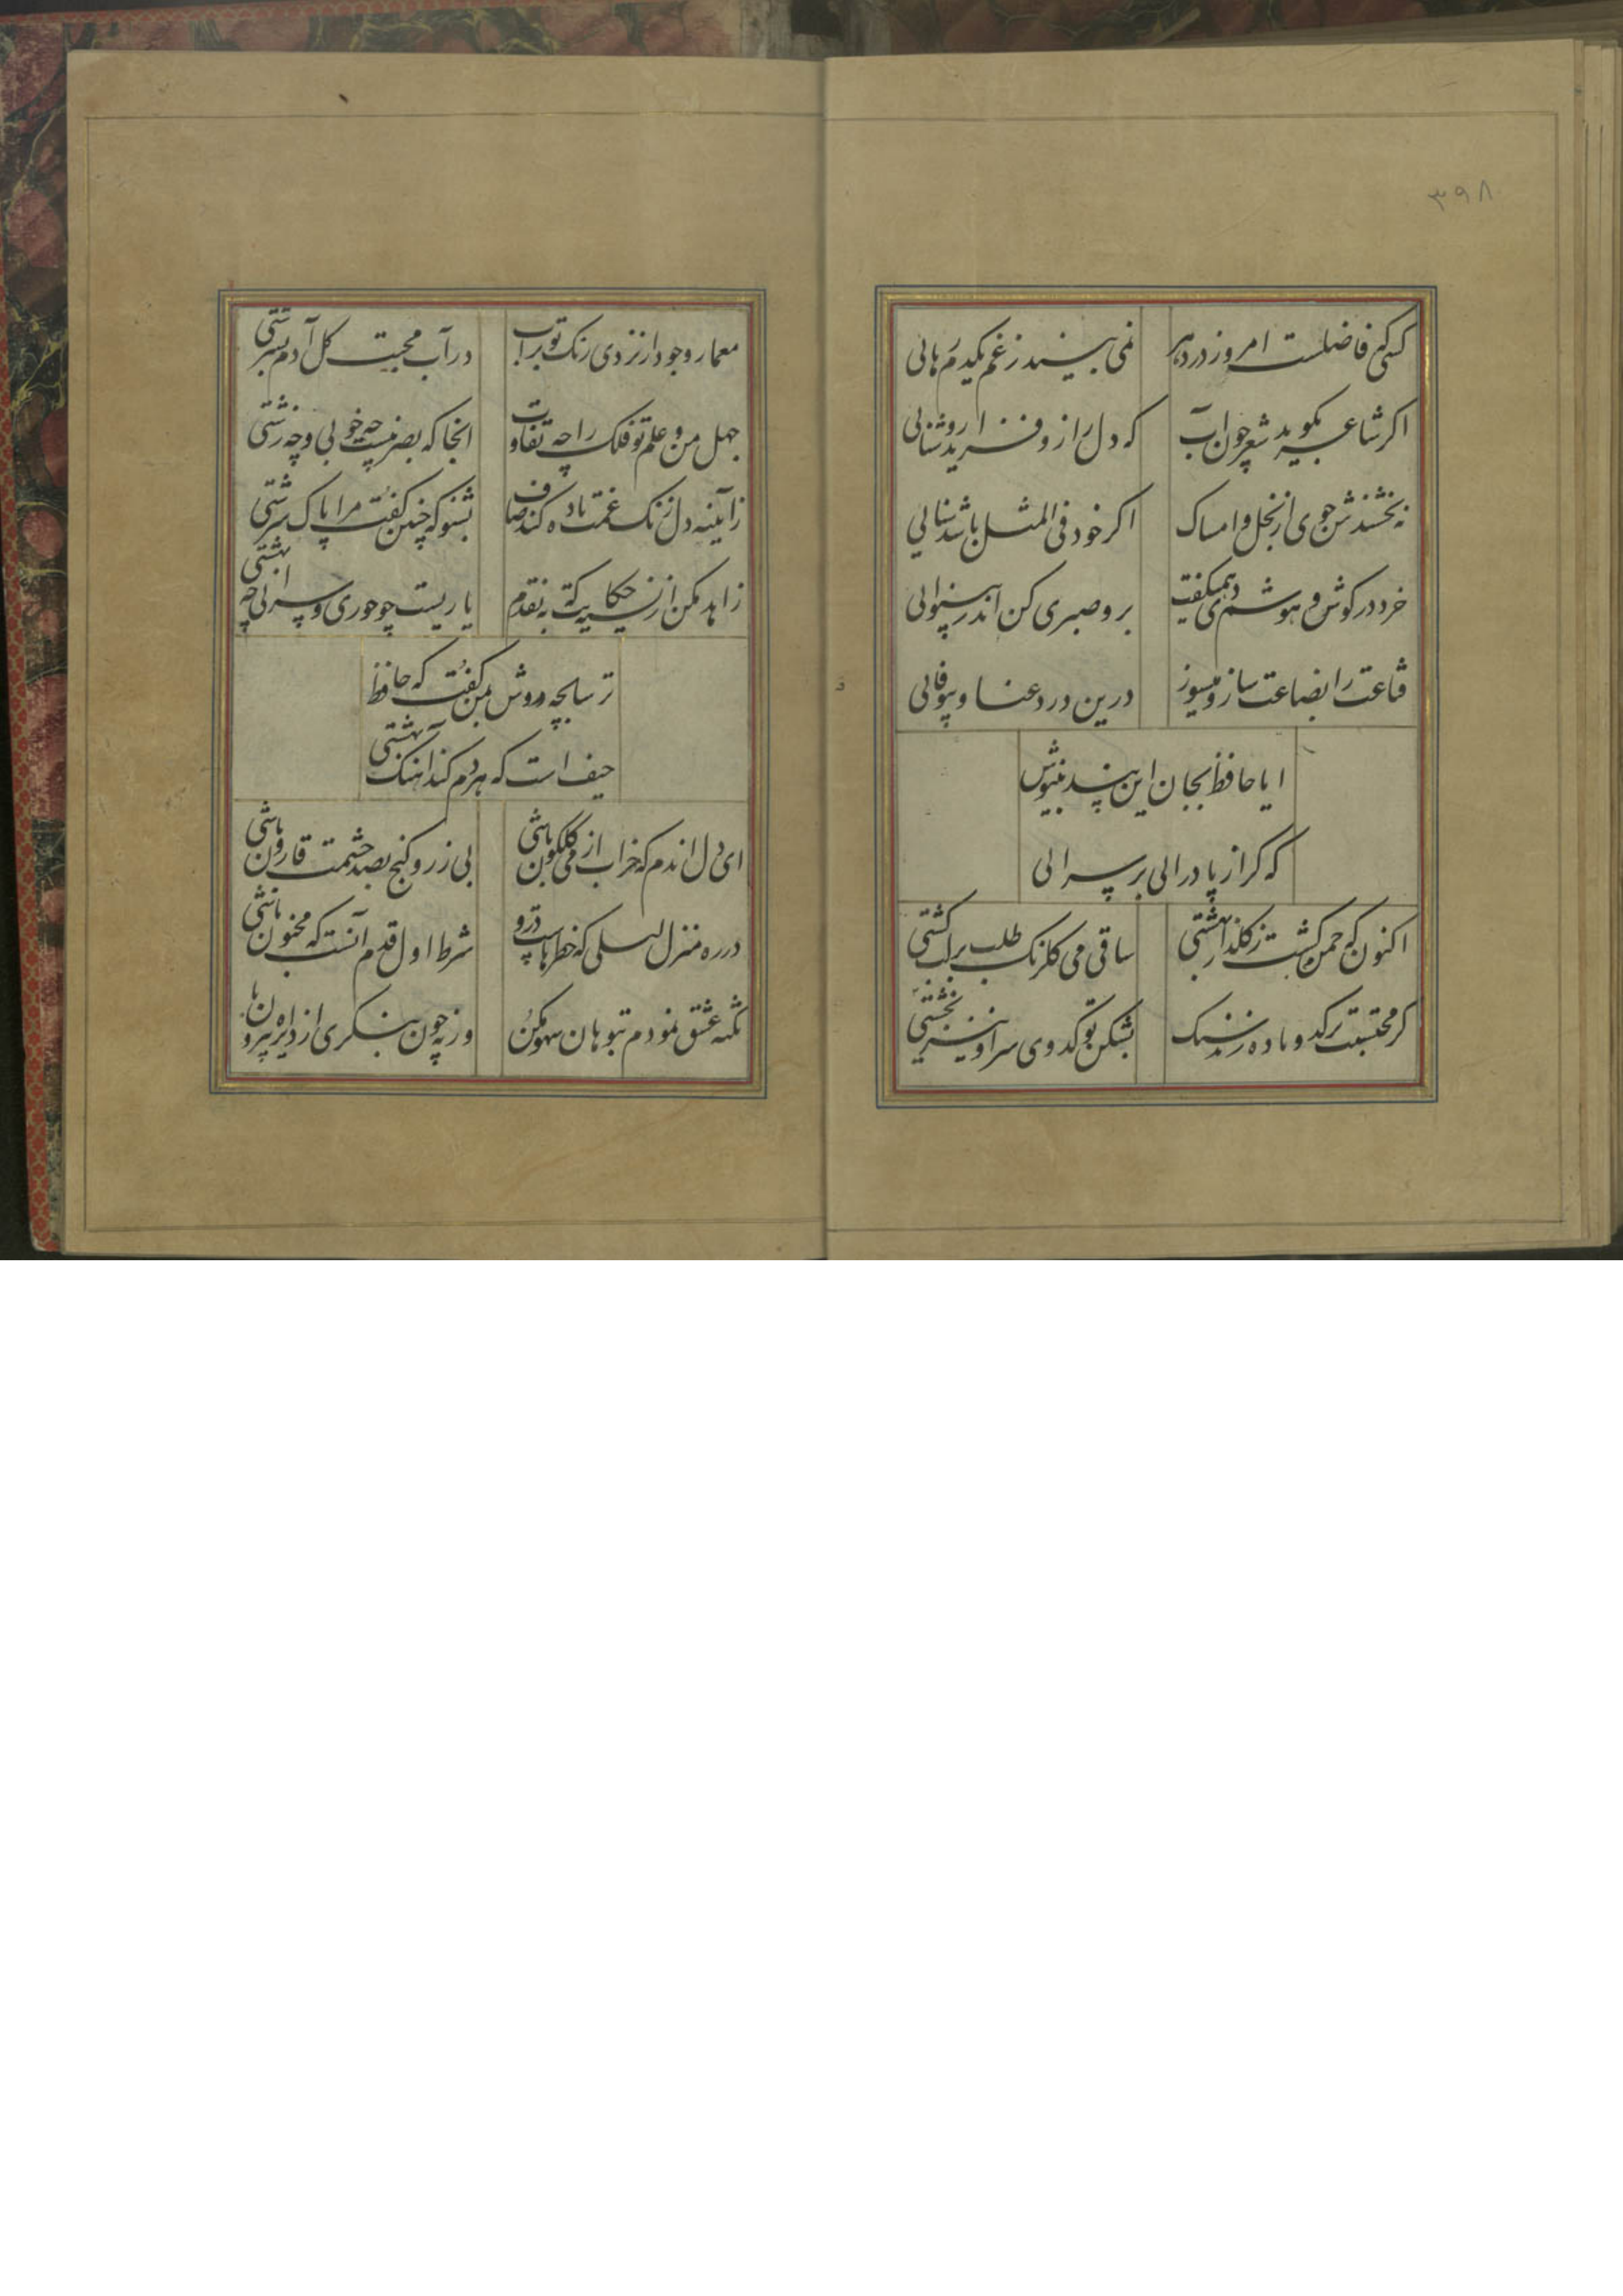 ۳۹۸
کسی کو فاضلست امروز در دهر نمی بیند ز غم یکدم رهائی
اکر شاعر بکوید شعر چون آب که دل را زو فزاید روشنائی
نه بخشندش جوی از بخل و امساک اکر خود فی المثل باشد سنائی
خرد در کوش هوشم دی همیکفت برو صبری کن اندر بینوائی
قناعت را بضاعت ساز و میسوز درین درد و عنا و بینوائی
ایا حافظ بجان این پند بنیوش
که کر از پا درائی بر سرائی
اکنون که چمن کشت ز کلزار بهشتی ساقی می کلرنک طلب بر لب کشتی
کر محتسبت بر کدو باده زند سنک بشکن تو کدوی سر او نیز بخشتی
معمار وجود ار نزدی رنک تو بر آب در آب محبت کل آدم نسرشتی
جهل من و علم تو فلک را چه تفاوت انجا که بصر نیست چه خوبی و چه زشتی
ز آیینه دل زنک غمت باده کند صاف بشنو که چنین کفت مرا پاک سرشتی
زاهد مکن از نسیه حکایت که به نقدم یاریست چو حوری و سرائی چه بهشتی
ترسابچه دوش بمن کفت که حافظ
حیف است که هر دم کند آهنک بهشتی
ای دل اندم که خراب از می کلکون باشی بی زر و کنج بصد حشمت قارون باشی
در ره منزل لیلی که خطرهاست درو شرط اول قدم آنست که مجنون باشی
نکته عشق نمودم بتو هان سهو مکن ورنه چون بنکری از دایره بیرون با